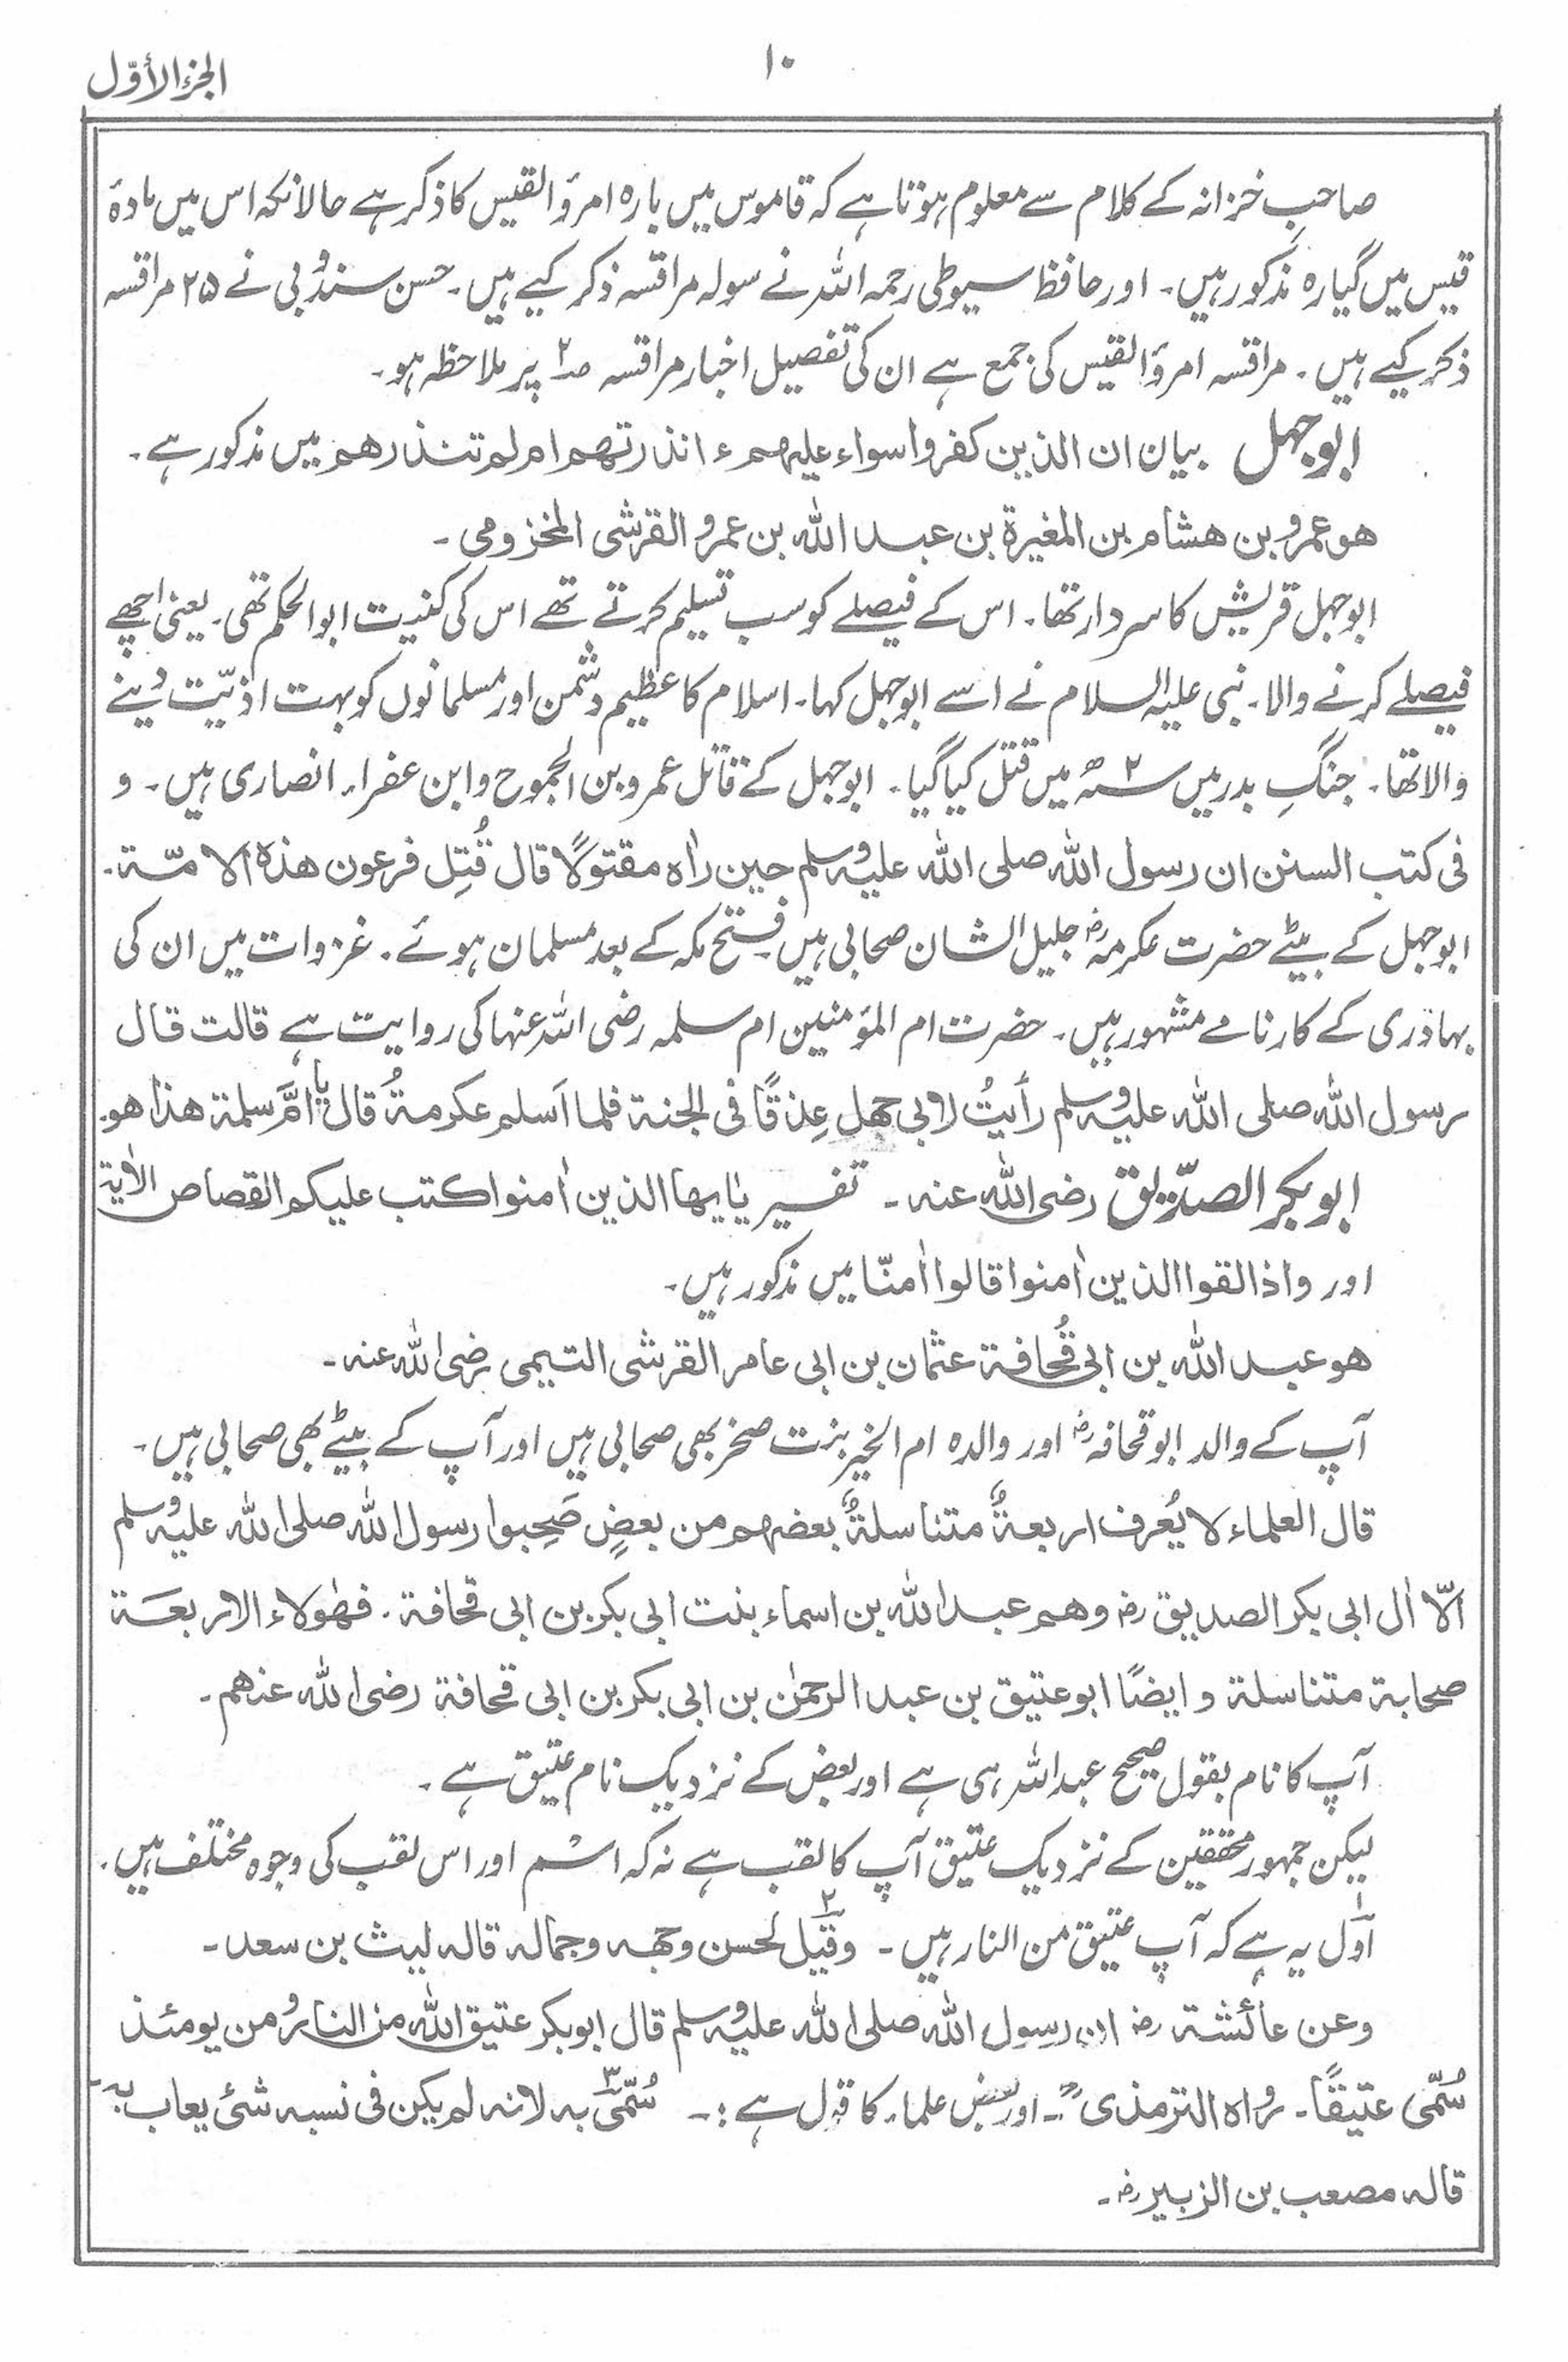 ۱۰
الجزء الأوّل
صاحبِ خزانہ کے کلام سے معلوم ہوتا ہے کہ قاموس میں بارہ امرؤ القیس کا ذکر ہے حالانکہ اس میں مادۂ
قیس میں گیارہ مذکور ہیں۔ اور حافظ سیوطی رحمہ اللہ نے سولہ مراقسہ ذکر کیے ہیں۔ حسن سندُوبی نے ۲۵ مراقسہ
ذکر کیے ہیں۔ مراقسہ امرؤ القیس کی جمع ہے ان کی تفصیل اخبار مراقسہ صـ۲ پر ملاحظہ ہو۔
ابوجہل بیان ان الذین کفروا سواء علیہم ءانذرتھم ام لم تنذرھم میں مذکور ہے۔
ھو عمرو بن ھشام بن المغیرۃ بن عبد اللہ بن عمرو القرشی المخزومی۔
ابوجہل قریش کا سردار تھا۔ اس کے فیصلے کو سب تسلیم کرتے تھے اس کی کنیت ابوالحکم تھی۔ یعنی اچھے
فیصلے کرنے والا۔ نبی علیہ السلام نے اسے ابوجہل کہا۔ اسلام کا عظیم دشمن اور مسلمانوں کو بہت اذیّت دینے
والا تھا۔ جنگِ بدر میں سـ۲ـہ میں قتل کیا گیا۔ ابوجہل کے قاتل عمرو بن الجموح و ابن عفراء انصاری ہیں۔ و
فی کتب السنن ان رسول اللہ صلی اللہ علیہ وسلم حین راٰہ مقتولًا قال قُتِل فرعون ھذہ الامّۃ۔
ابوجہل کے بیٹے حضرت عکرمہؓ جلیل الشان صحابی ہیں۔ فتح مکہ کے بعد مسلمان ہوئے۔ غزوات میں ان کی
بہادری کے کارنامے مشہور ہیں۔ حضرت ام المؤمنین ام سلمہ رضی اللہ عنہا کی روایت ہے قالت قال
رسول اللہ صلی اللہ علیہ وسلم رأیتُ لابی جھل عِذقًا فی الجنۃ فلما اَسلم عکرمۃُ قال یا امَّ سلمۃ ھذا ھو۔
ابو بکر الصدّیق رضی اللہ عنہ۔ تفسیر یٰایھا الذین اٰمنوا کتب علیکم القصاص الاٰیۃ
اور واذا لقوا الذین اٰمنوا قالوا اٰمنّا میں مذکور ہیں۔
ھو عبد اللہ بن ابی قُحافۃ عثمان بن ابی عامر القرشی التیمی رضی اللہ عنہ۔
آپ کے والد ابو قحافہؓ اور والدہ ام الخیر بنت صخر بھی صحابی ہیں اور آپ کے بیٹے بھی صحابی ہیں۔
قال العلماء لا یُعرف اربعۃٌ متناسلۃٌ بعضھم من بعضٍ صَحِبوا رسول اللہ صلی اللہ علیہ وسلم
الّا اٰل ابی بکر الصدیقؓ وھم عبد اللہ بن اسماء بنت ابی بکر بن ابی قحافۃ۔ فھٰولاء الاربعۃ
صحابۃ متناسلۃ و ایضًا ابو عتیق بن عبد الرحمٰن بن ابی بکر بن ابی قحافۃ رضی اللہ عنھم۔
آپ کا نام بقول صحیح عبد اللہ ہی ہے اور بعض کے نزدیک نام عتیق ہے۔
لیکن جمہور محققین کے نزدیک عتیق آپ کا لقب ہے نہ کہ اسم اور اس لقب کی وجوہ مختلف ہیں۔
۱ اوّل یہ ہے کہ آپ عتیق من النار ہیں۔ ۲ وقیل لحسن وجھہ وجمالہ قالہ لیث بن سعد۔
وعن عائشۃؓ ان رسول اللہ صلی اللہ علیہ وسلم قال ابو بکر عتیق اللہ من النار ومن یومئذ
سُمّی عتیقًا۔ رواہ الترمذی۔ اور بعض علماء کا قول ہے :۔ ۳ سُمّی بہ لانہ لم یکن فی نسبہ شئ یعاب بہ۔
قالہ مصعب بن الزبیرؓ۔